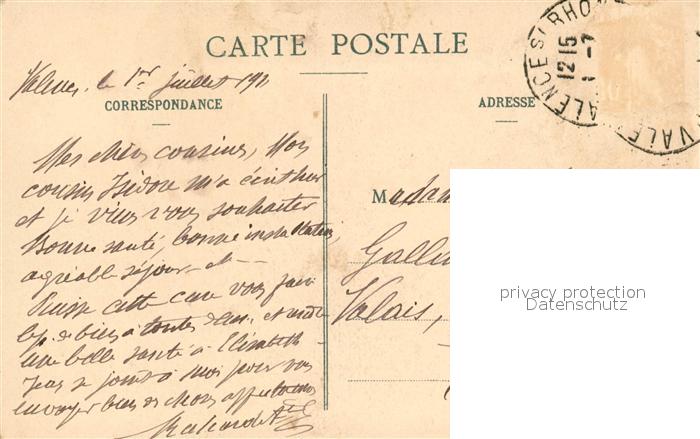 CARTE POSTALE
le 1er Juillet 191
CORRESPONDANCE
ADRESSE
VALENCE S/ RHO
12 15
1 -7
VALE
Mes chers cousins, Mon
cousin Isidore m'a écrit hier
et je viens vous souhaiter
Bonne santé, bonne installation,
agréable séjour et
Puisse cette cure vous faire
de bien à toutes deux, et
une belle santé à Elisabeth
Jean se joint à moi pour vous
envoyer bien de choses affectueuses
Madam
Valais,
privacy protection
Datenschutz